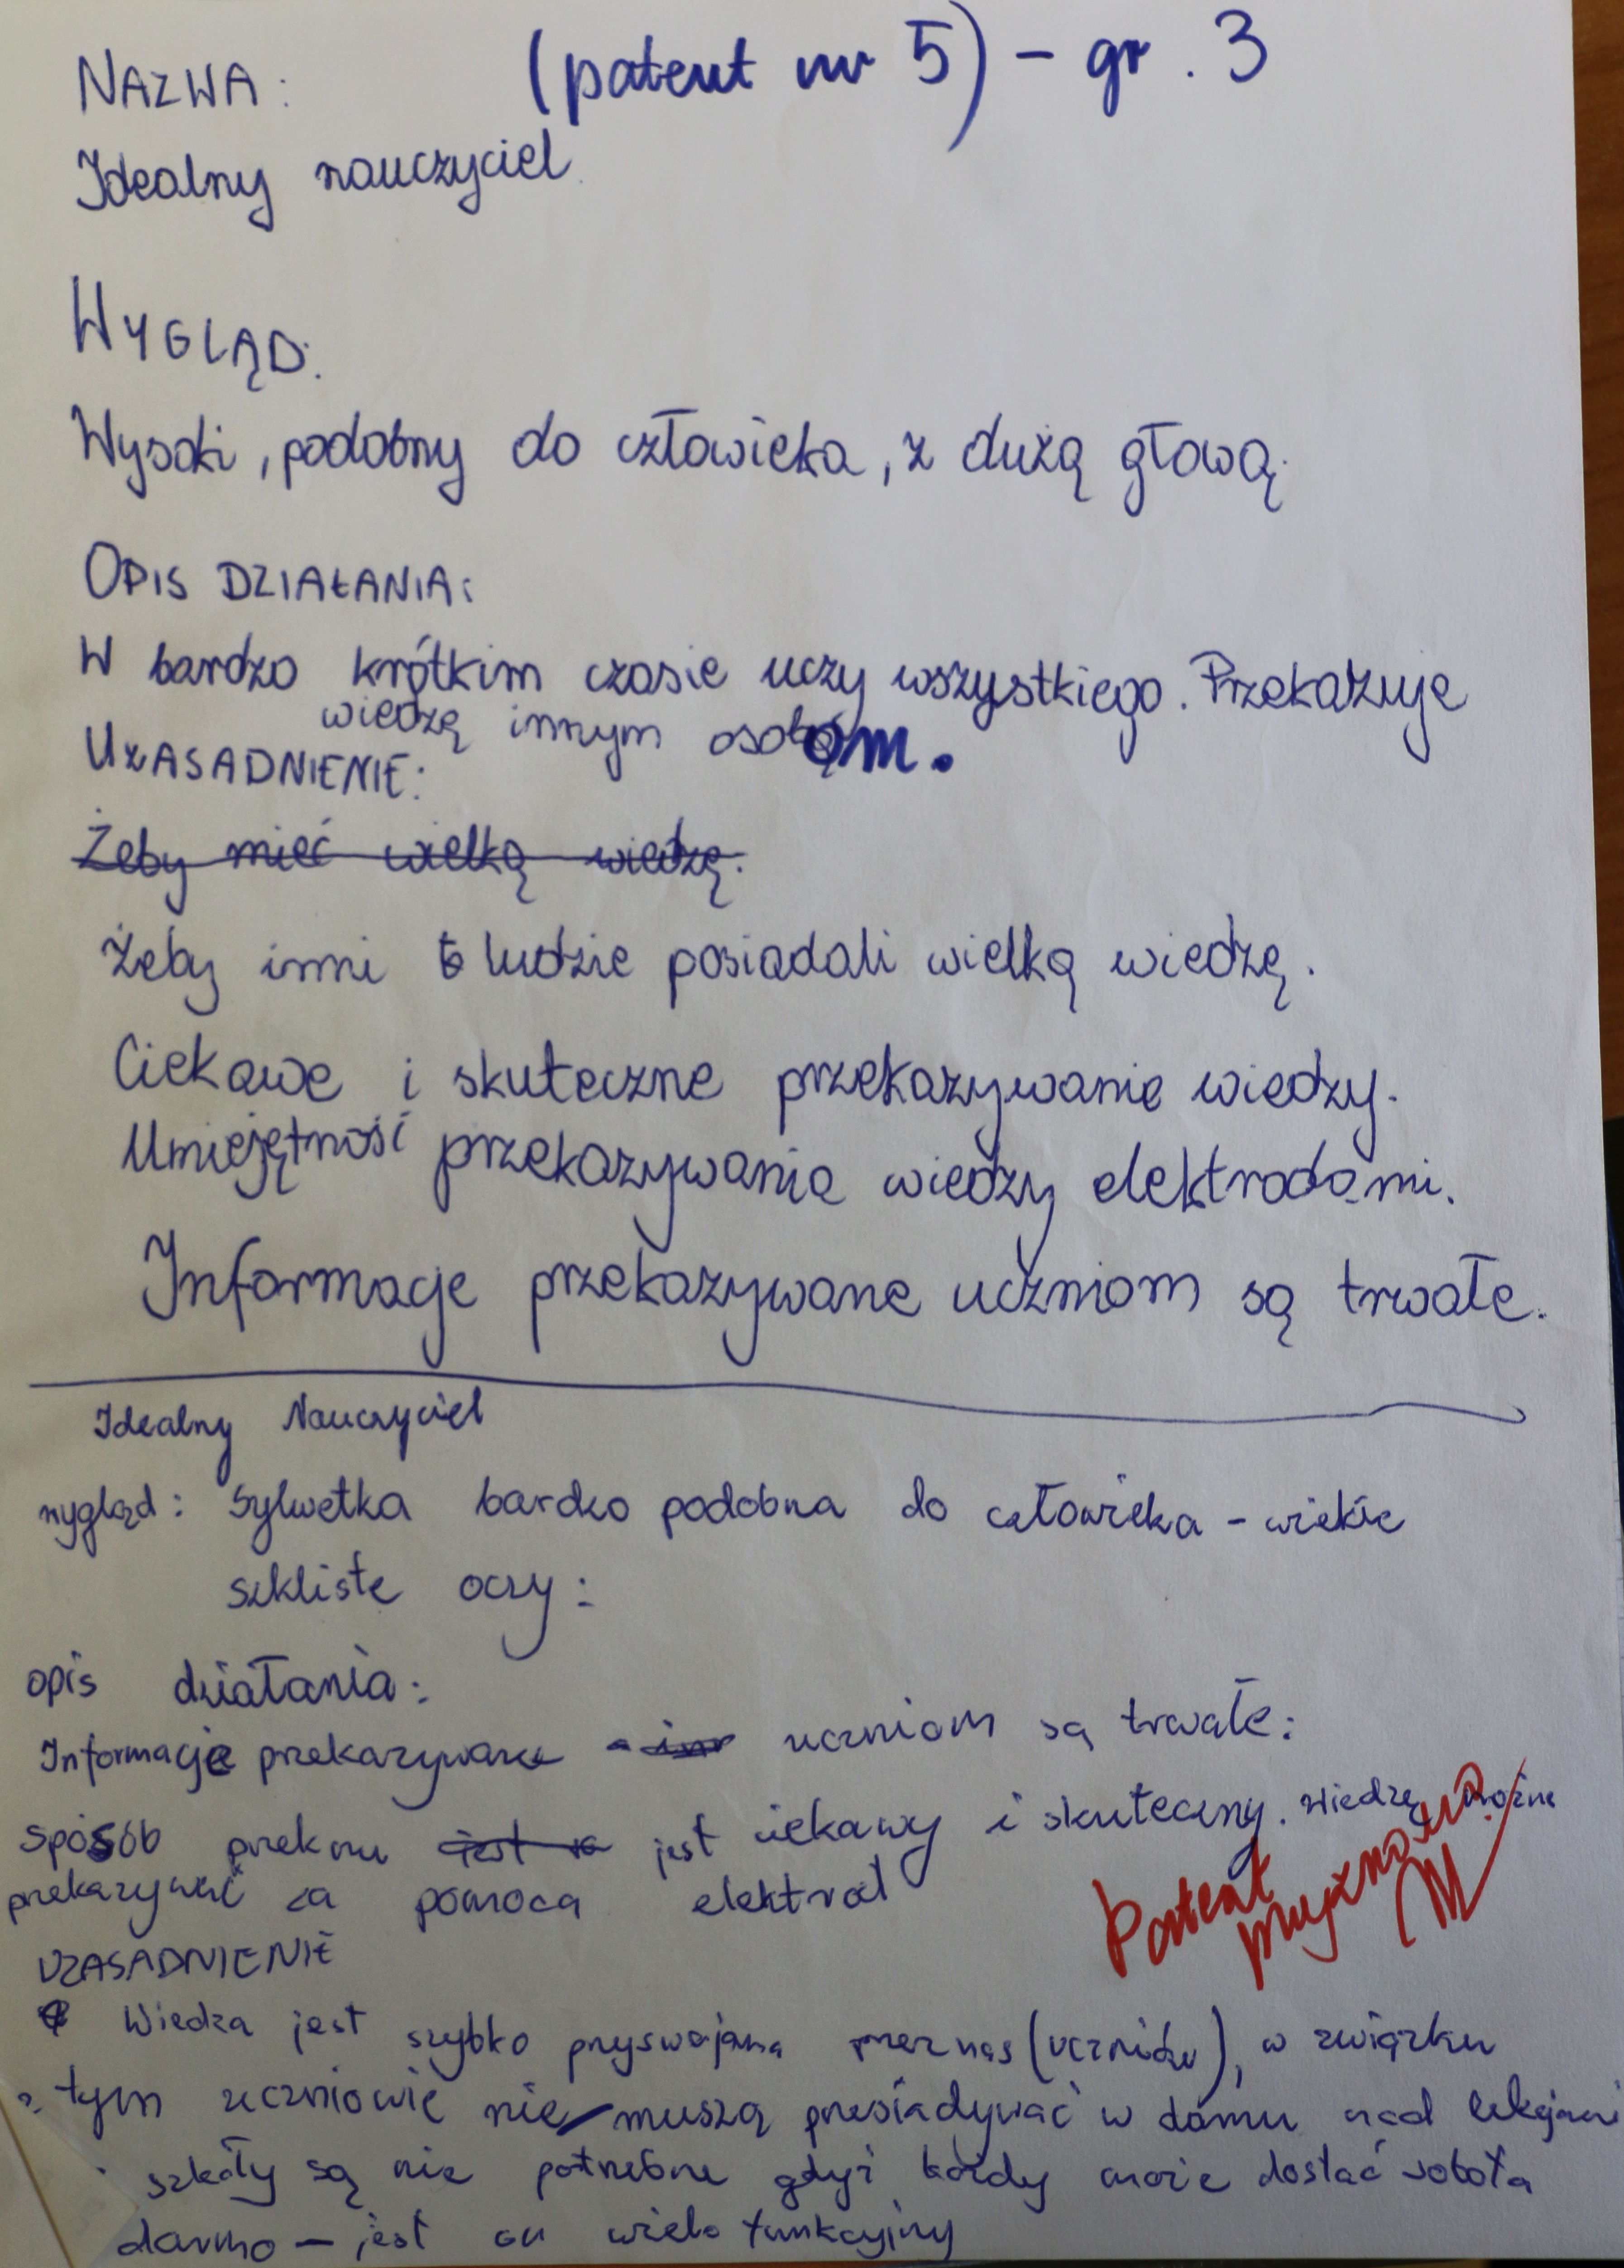 NAZWA: (patent nr 5) - gr. 3
Idealny nauczyciel
WYGLĄD:
Wysoki, podobny do człowieka, z dużą głową.
OPIS DZIAŁANIA:
W bardzo krótkim czasie uczy wszystkiego. Przekazuje
wiedzę innym osobom.
UZASADNIENIE:
Żeby mieć wielką wiedzę.
Żeby inni ludzie posiadali wielką wiedzę.
Ciekawe i skuteczne przekazywanie wiedzy.
Umiejętność przekazywania wiedzy elektrodami.
Informacje przekazywane uczniom są trwałe.
Idealny Nauczyciel
wygląd: Sylwetka bardzo podobna do człowieka - wiekie
szkliste oczy:
opis działania:
Informacje przekazywane uczniom są trwałe:
sposób przekazu jest ciekawy i skuteczny. Wiedzę można
przekazywać za pomoca elektrod
UZASADNIENIE
Wiedza jest szybko przyswajana przez nas (uczniów), w związku
z tym uczniowie nie muszą przesiadywać w domu nad lekcjami
szkoły są nie potrzebne gdyż każdy może dostać robota
darmo - jest on wielo funkcyjny
Patent
przyznano